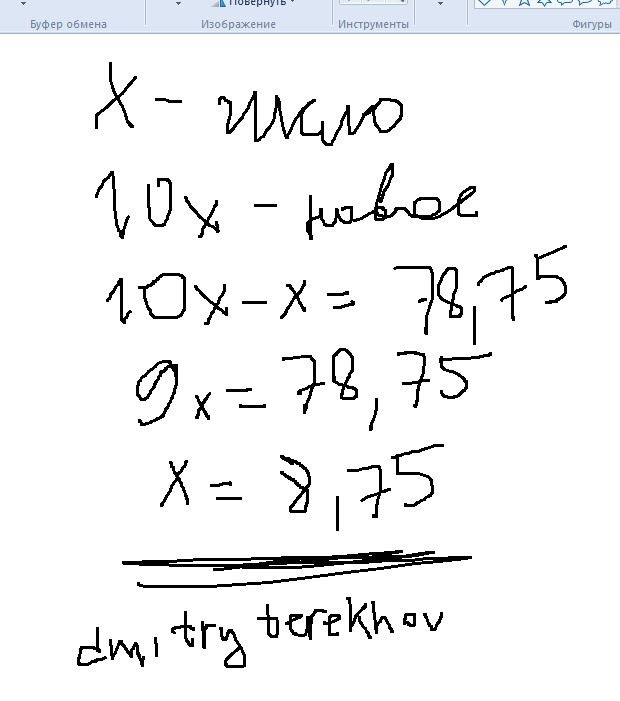 Повернуть
Буфер обмена Изображение Инструменты Фигуры
x - число
10x - новое
10x - x = 78,75
9x = 78,75
x = 8,75
dmitry terekhov